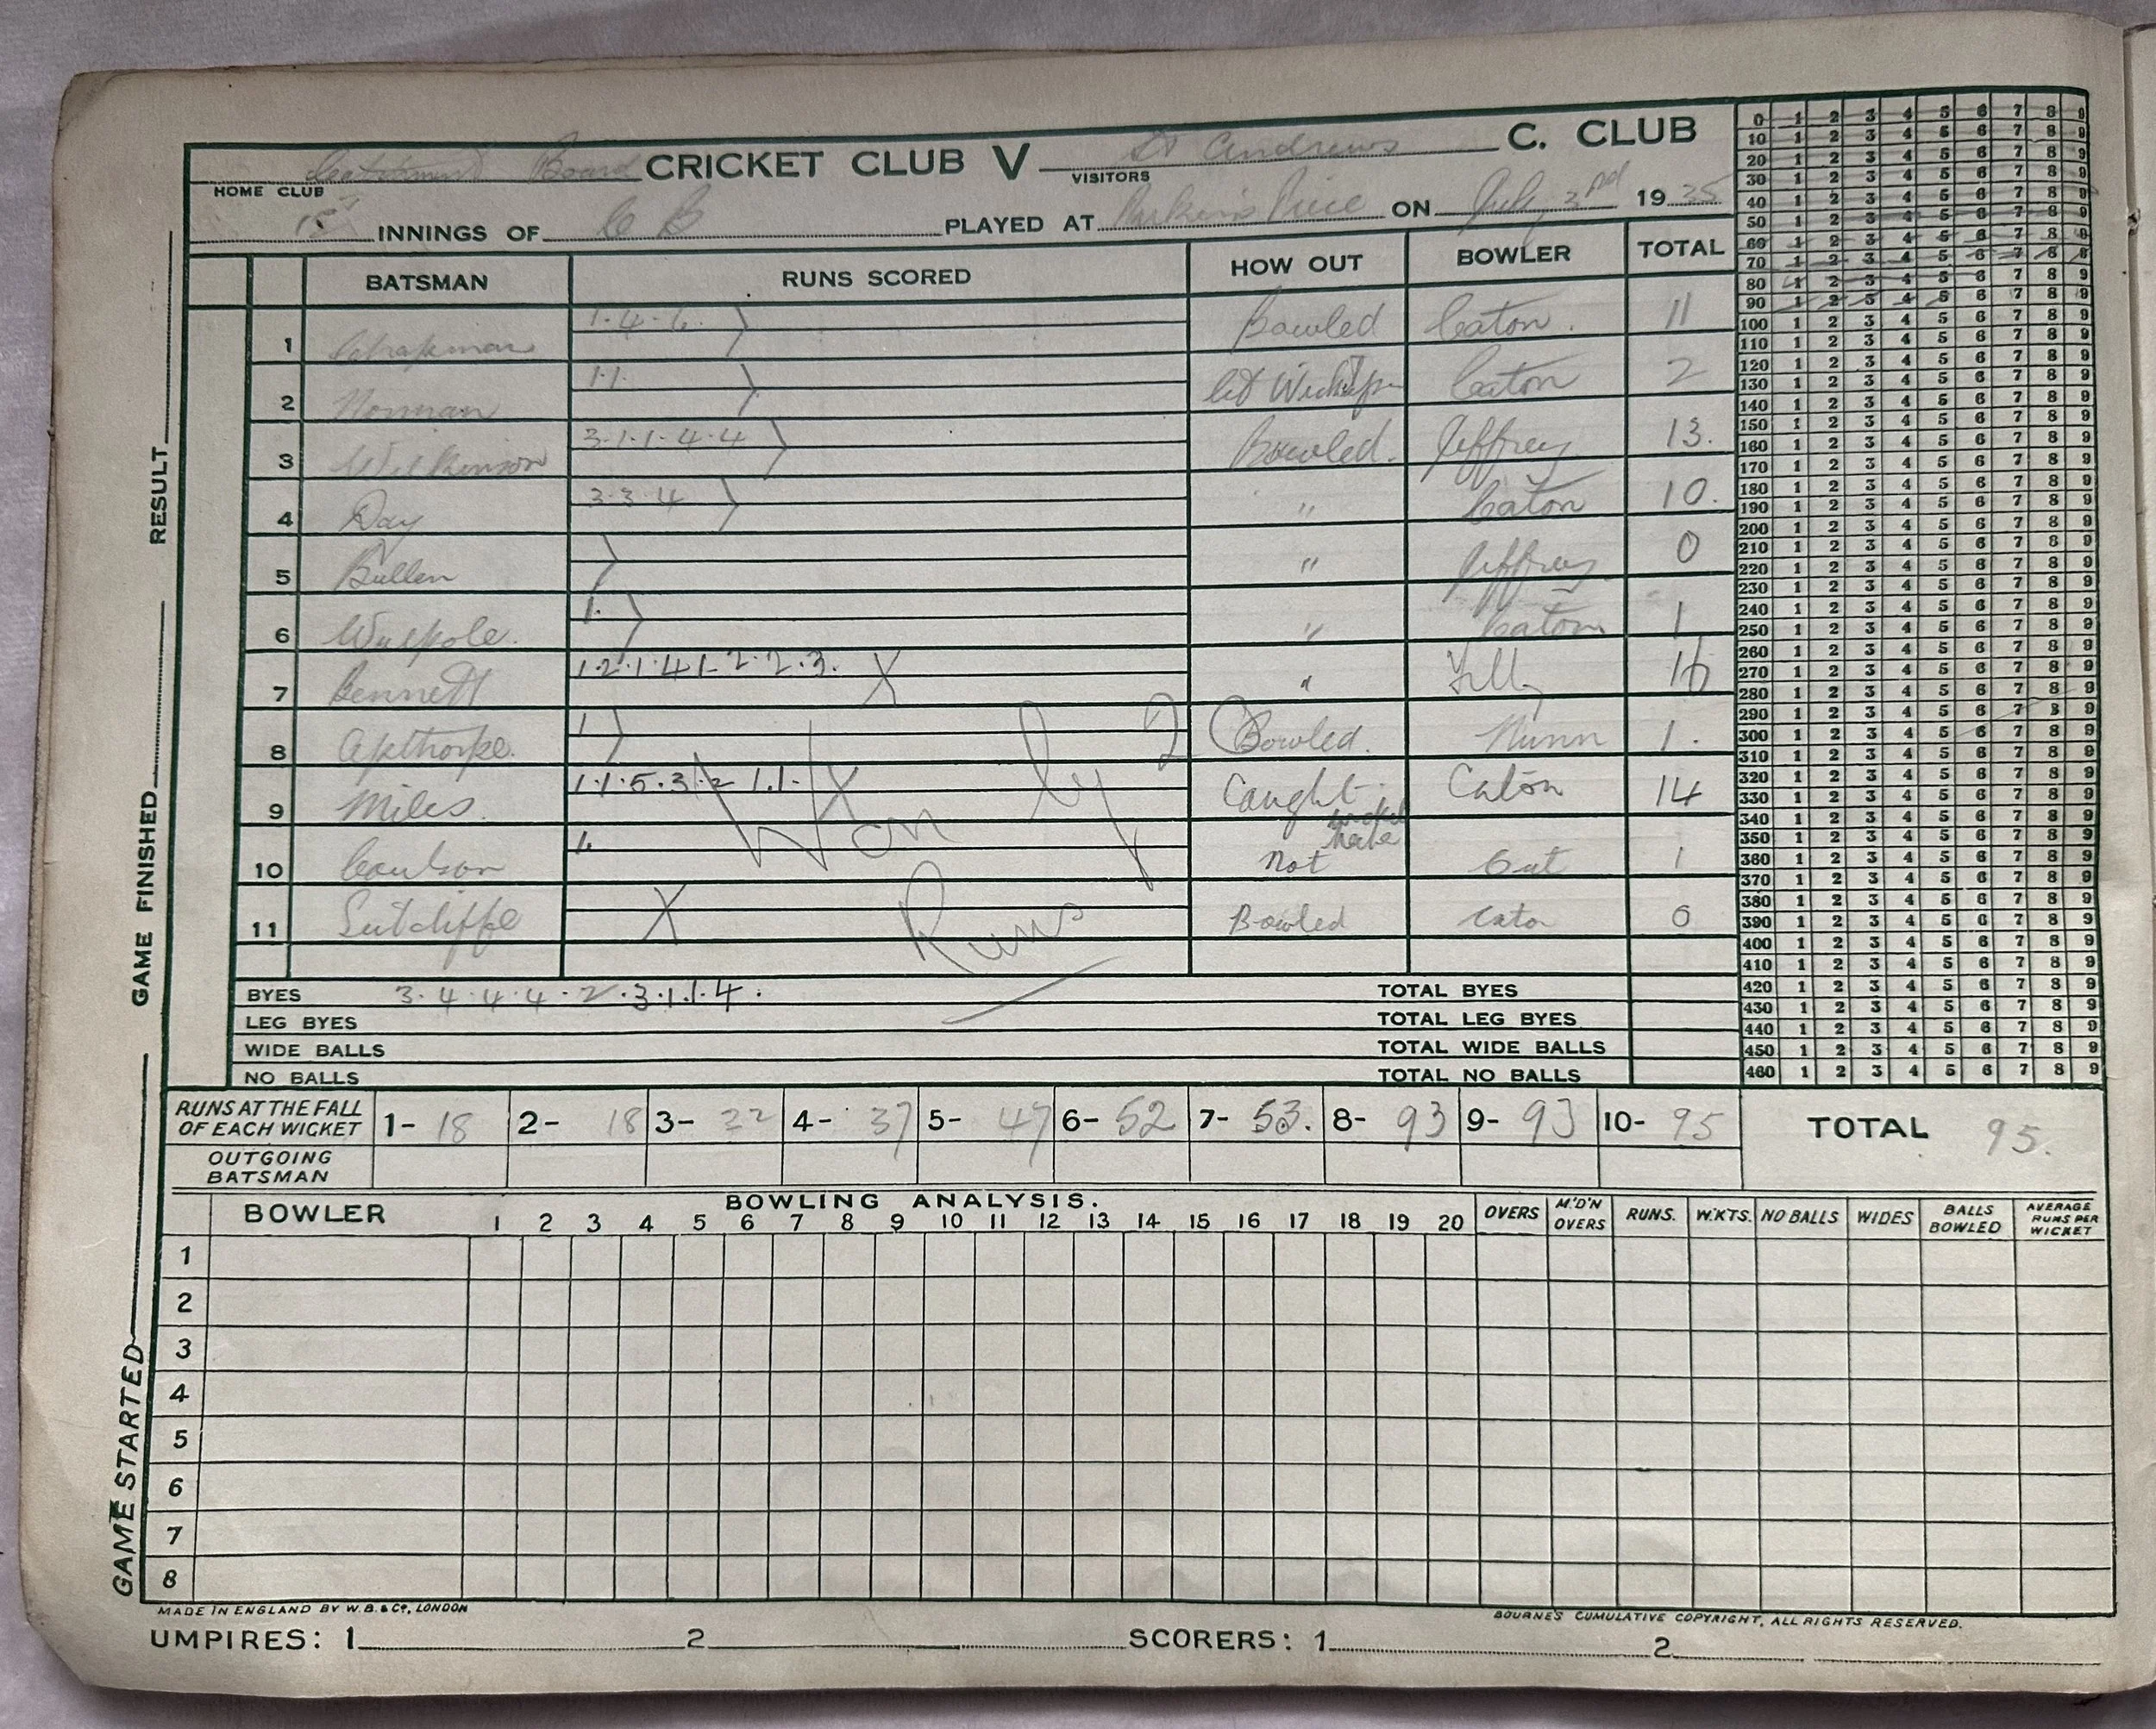 Catchment Board CRICKET CLUB V St Andrews C. CLUB
HOME CLUB VISITORS
1st INNINGS OF C B PLAYED AT Parker's Piece ON July 3rd 1935
BATSMAN RUNS SCORED HOW OUT BOWLER TOTAL
1 Chapman 1·4·6 Bowled Caton. 11
2 Norman 1·1· Hit Wicket Caton 2
3 Wilkinson 3·1·1·4·4 Bowled. Jeffrey 13.
4 Day 3·3·4 " Caton 10.
5 Bullen " Jeffrey 0
6 Walpole. 1· " Caton 1
7 Bennett 1·2·1·4·1·2·2·3. X " 16
8 Apthorpe. 1 Bowled. Nunn 1.
9 Miles. 1·1·5·3·2·1.1· X Caught Caton 14
10 Coulson 1. not Out 1
11 Sutcliffe X Bowled Caton 0
Won by 2
Runs
BYES 3·4·4·4·2·3·1·1·4· TOTAL BYES
LEG BYES TOTAL LEG BYES
WIDE BALLS TOTAL WIDE BALLS
NO BALLS TOTAL NO BALLS
RUNS AT THE FALL OF EACH WICKET 1- 18 2- 18 3- 22 4- 37 5- 47 6- 52 7- 53. 8- 93 9- 93 10- 95 TOTAL 95.
OUTGOING BATSMAN
BOWLING ANALYSIS.
BOWLER 1 2 3 4 5 6 7 8 9 10 11 12 13 14 15 16 17 18 19 20 OVERS M'D'N OVERS RUNS. W'KTS. NO BALLS WIDES BALLS BOWLED AVERAGE RUNS PER WICKET
1
2
3
4
5
6
7
8
MADE IN ENGLAND BY W.B. & Co, LONDON
BOURNE'S CUMULATIVE COPYRIGHT, ALL RIGHTS RESERVED.
UMPIRES: 1 2 SCORERS: 1 2
GAME STARTED GAME FINISHED RESULT
0 1 2 3 4 5 6 7 8 9
10 1 2 3 4 5 6 7 8 9
20 1 2 3 4 5 6 7 8 9
30 1 2 3 4 5 6 7 8 9
40 1 2 3 4 5 6 7 8 9
50 1 2 3 4 5 6 7 8 9
60 1 2 3 4 5 6 7 8 9
70 1 2 3 4 5 6 7 8 9
80 1 2 3 4 5 6 7 8 9
90 1 2 3 4 5 6 7 8 9
100 1 2 3 4 5 6 7 8 9
110 1 2 3 4 5 6 7 8 9
120 1 2 3 4 5 6 7 8 9
130 1 2 3 4 5 6 7 8 9
140 1 2 3 4 5 6 7 8 9
150 1 2 3 4 5 6 7 8 9
160 1 2 3 4 5 6 7 8 9
170 1 2 3 4 5 6 7 8 9
180 1 2 3 4 5 6 7 8 9
190 1 2 3 4 5 6 7 8 9
200 1 2 3 4 5 6 7 8 9
210 1 2 3 4 5 6 7 8 9
220 1 2 3 4 5 6 7 8 9
230 1 2 3 4 5 6 7 8 9
240 1 2 3 4 5 6 7 8 9
250 1 2 3 4 5 6 7 8 9
260 1 2 3 4 5 6 7 8 9
270 1 2 3 4 5 6 7 8 9
280 1 2 3 4 5 6 7 8 9
290 1 2 3 4 5 6 7 8 9
300 1 2 3 4 5 6 7 8 9
310 1 2 3 4 5 6 7 8 9
320 1 2 3 4 5 6 7 8 9
330 1 2 3 4 5 6 7 8 9
340 1 2 3 4 5 6 7 8 9
350 1 2 3 4 5 6 7 8 9
360 1 2 3 4 5 6 7 8 9
370 1 2 3 4 5 6 7 8 9
380 1 2 3 4 5 6 7 8 9
390 1 2 3 4 5 6 7 8 9
400 1 2 3 4 5 6 7 8 9
410 1 2 3 4 5 6 7 8 9
420 1 2 3 4 5 6 7 8 9
430 1 2 3 4 5 6 7 8 9
440 1 2 3 4 5 6 7 8 9
450 1 2 3 4 5 6 7 8 9
460 1 2 3 4 5 6 7 8 9